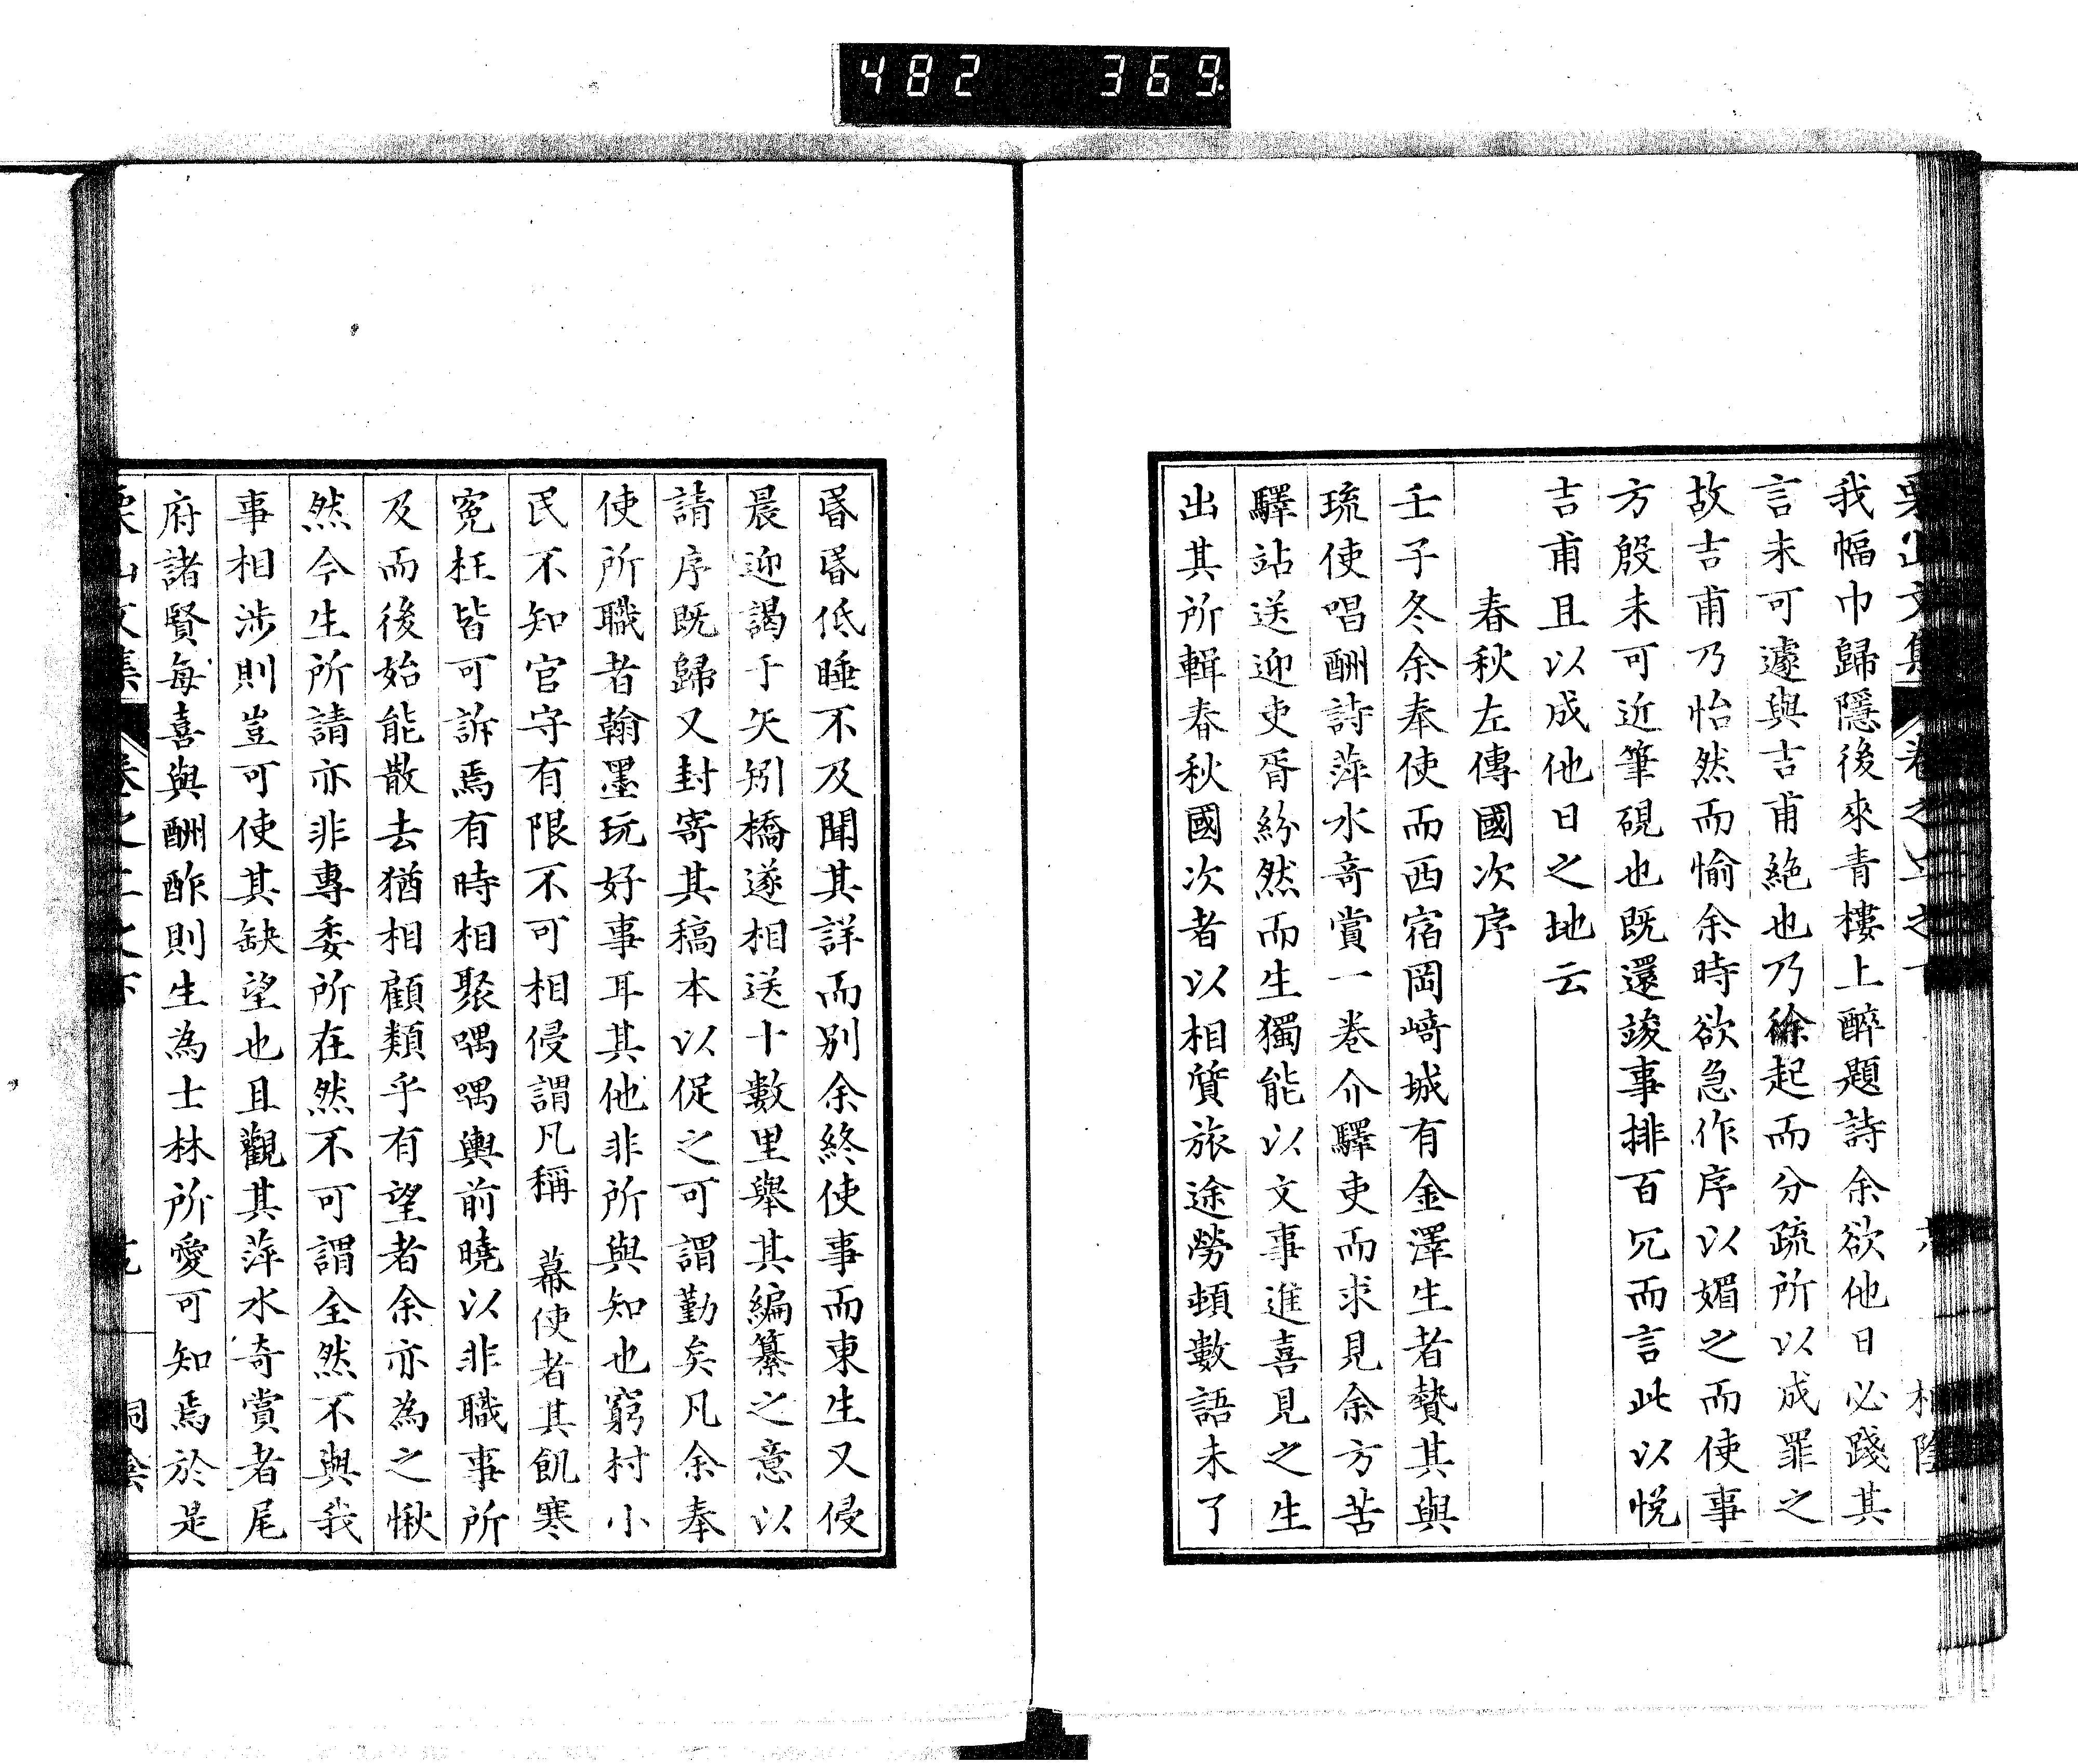 482 369
我幅巾歸隱後來青樓上醉題詩余欲他日必踐其
言未可遽與吉甫絶也乃徐起而分疏所以成罪之
故吉甫乃怡然而愉余時欲急作序以媚之而使事
方殷未可近筆硯也既還竣事排百冗而言此以悅
吉甫且以成他日之地云
春秋左傳國次序
壬子冬余奉使而西宿岡﨑城有金澤生者贄其與
琉使唱酬詩萍水奇賞一巻介驛吏而求見余方苦
驛站送迎吏胥紛然而生獨能以文事進喜見之生
出其所輯春秋國次者以相質旅途勞頓數語未了
昬昬低睡不及聞其詳而别余終使事而東生又侵
晨迎謁于矢矧橋遂相送十數里舉其編纂之意以
請序既歸又封寄其稿本以促之可謂勤矣凡余奉
使所職者翰墨玩好事耳其他非所與知也窮村小
民不知官守有限不可相侵謂凡稱 幕使者其飢寒
寃枉皆可訴焉有時相聚喁喁輿前曉以非職事所
及而後始能散去猶相顧類乎有望者余亦為之愀
然今生所請亦非專委所在然不可謂全然不與我
事相涉則豈可使其缺望也且觀其萍水奇賞者尾
府諸賢每喜與酬酢則生為士林所愛可知焉於是